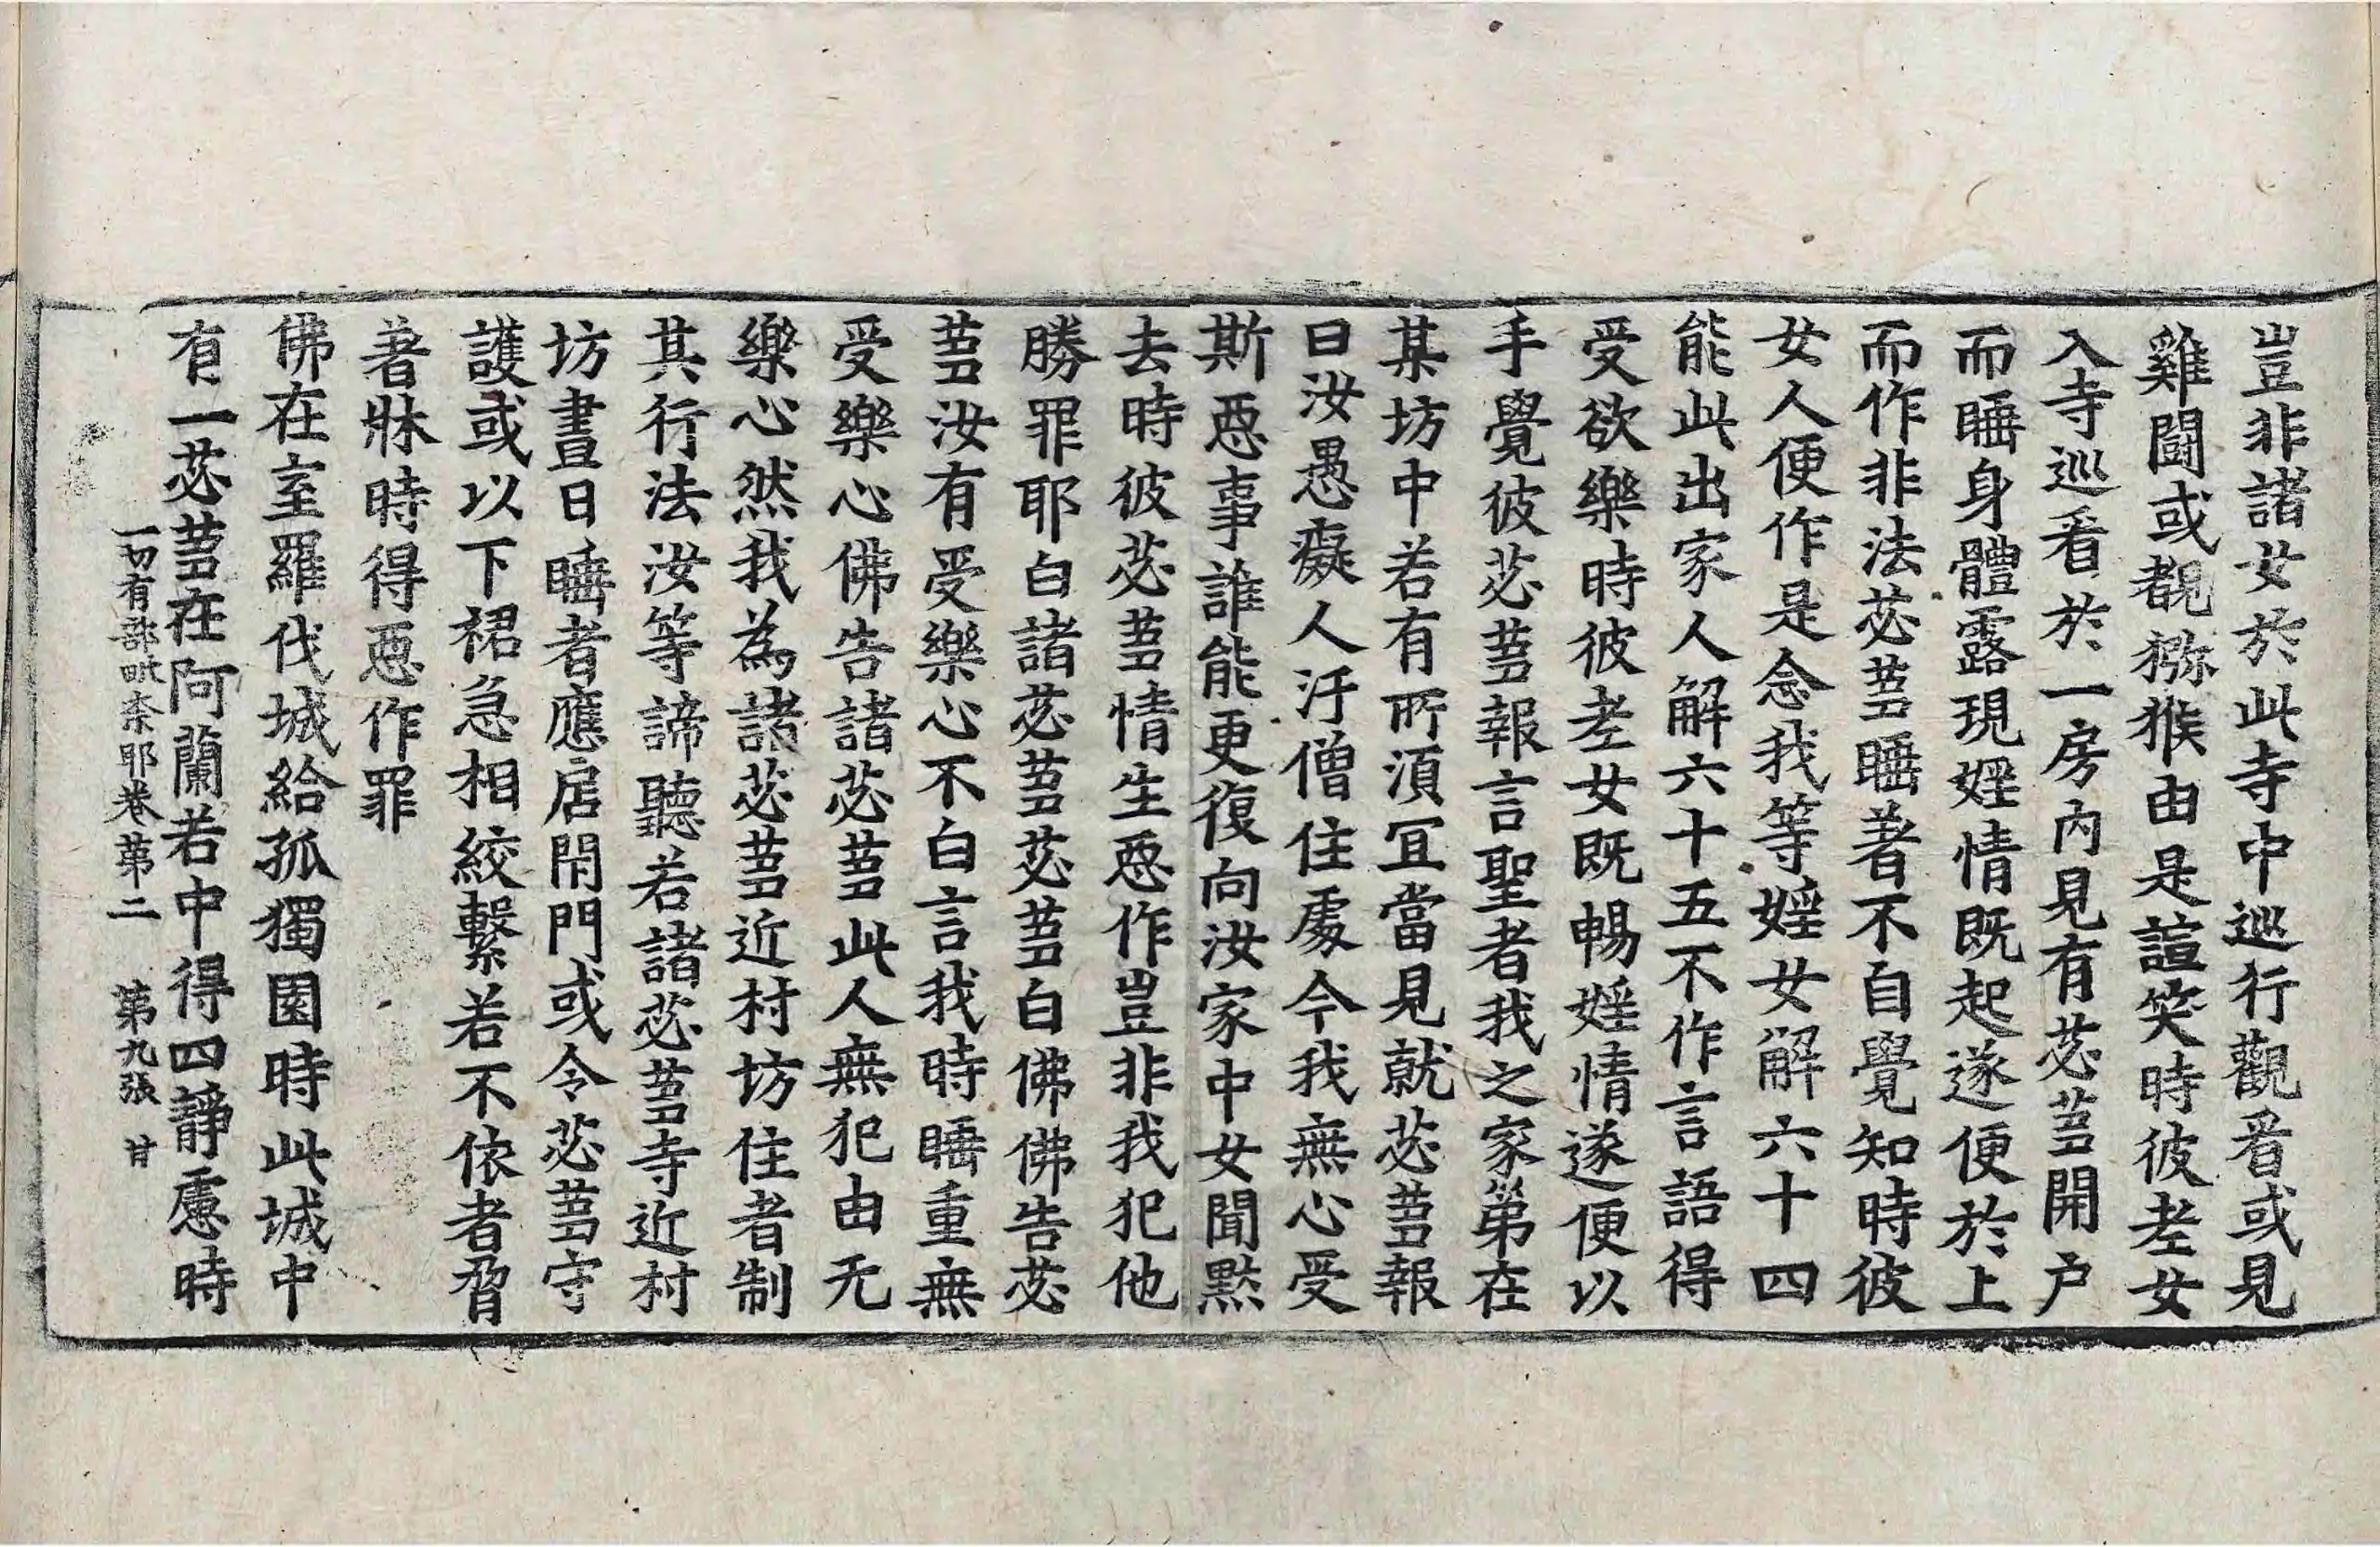 豈非諸女於此寺中巡行觀看或見
雞鬪或覩猕猴由是諠笑時彼老女
入寺巡看於一房內見有苾蒭開户
而睡身體露現婬情既起遂便於上
而作非法苾蒭睡著不自覺知時彼
女人便作是念我等婬女解六十四
能此出家人解六十五不作言語得
受欲樂時彼老女既暢婬情遂便以
手覺彼苾蒭報言聖者我之家第在
某坊中若有所須冝當見就苾蒭報
曰汝愚癡人汙僧住處今我無心受
斯惡事誰能更復向汝家中女聞黙
去時彼苾蒭情生惡作豈非我犯他
勝罪耶白諸苾蒭苾蒭白佛佛告苾
蒭汝有受樂心不白言我時睡重無
受樂心佛告諸苾蒭此人無犯由无
樂心然我為諸苾蒭近村坊住者制
其行法汝等諦聽若諸苾蒭寺近村
坊晝日睡者應扂閇門或令苾蒭守
護或以下裙急相絞繫若不依者脅
著牀時得惡作罪
佛在室羅伐城給孤獨園時此城中
有一苾蒭在阿蘭若中得四靜慮時
一切有部毗柰耶卷第二 第九張 甘